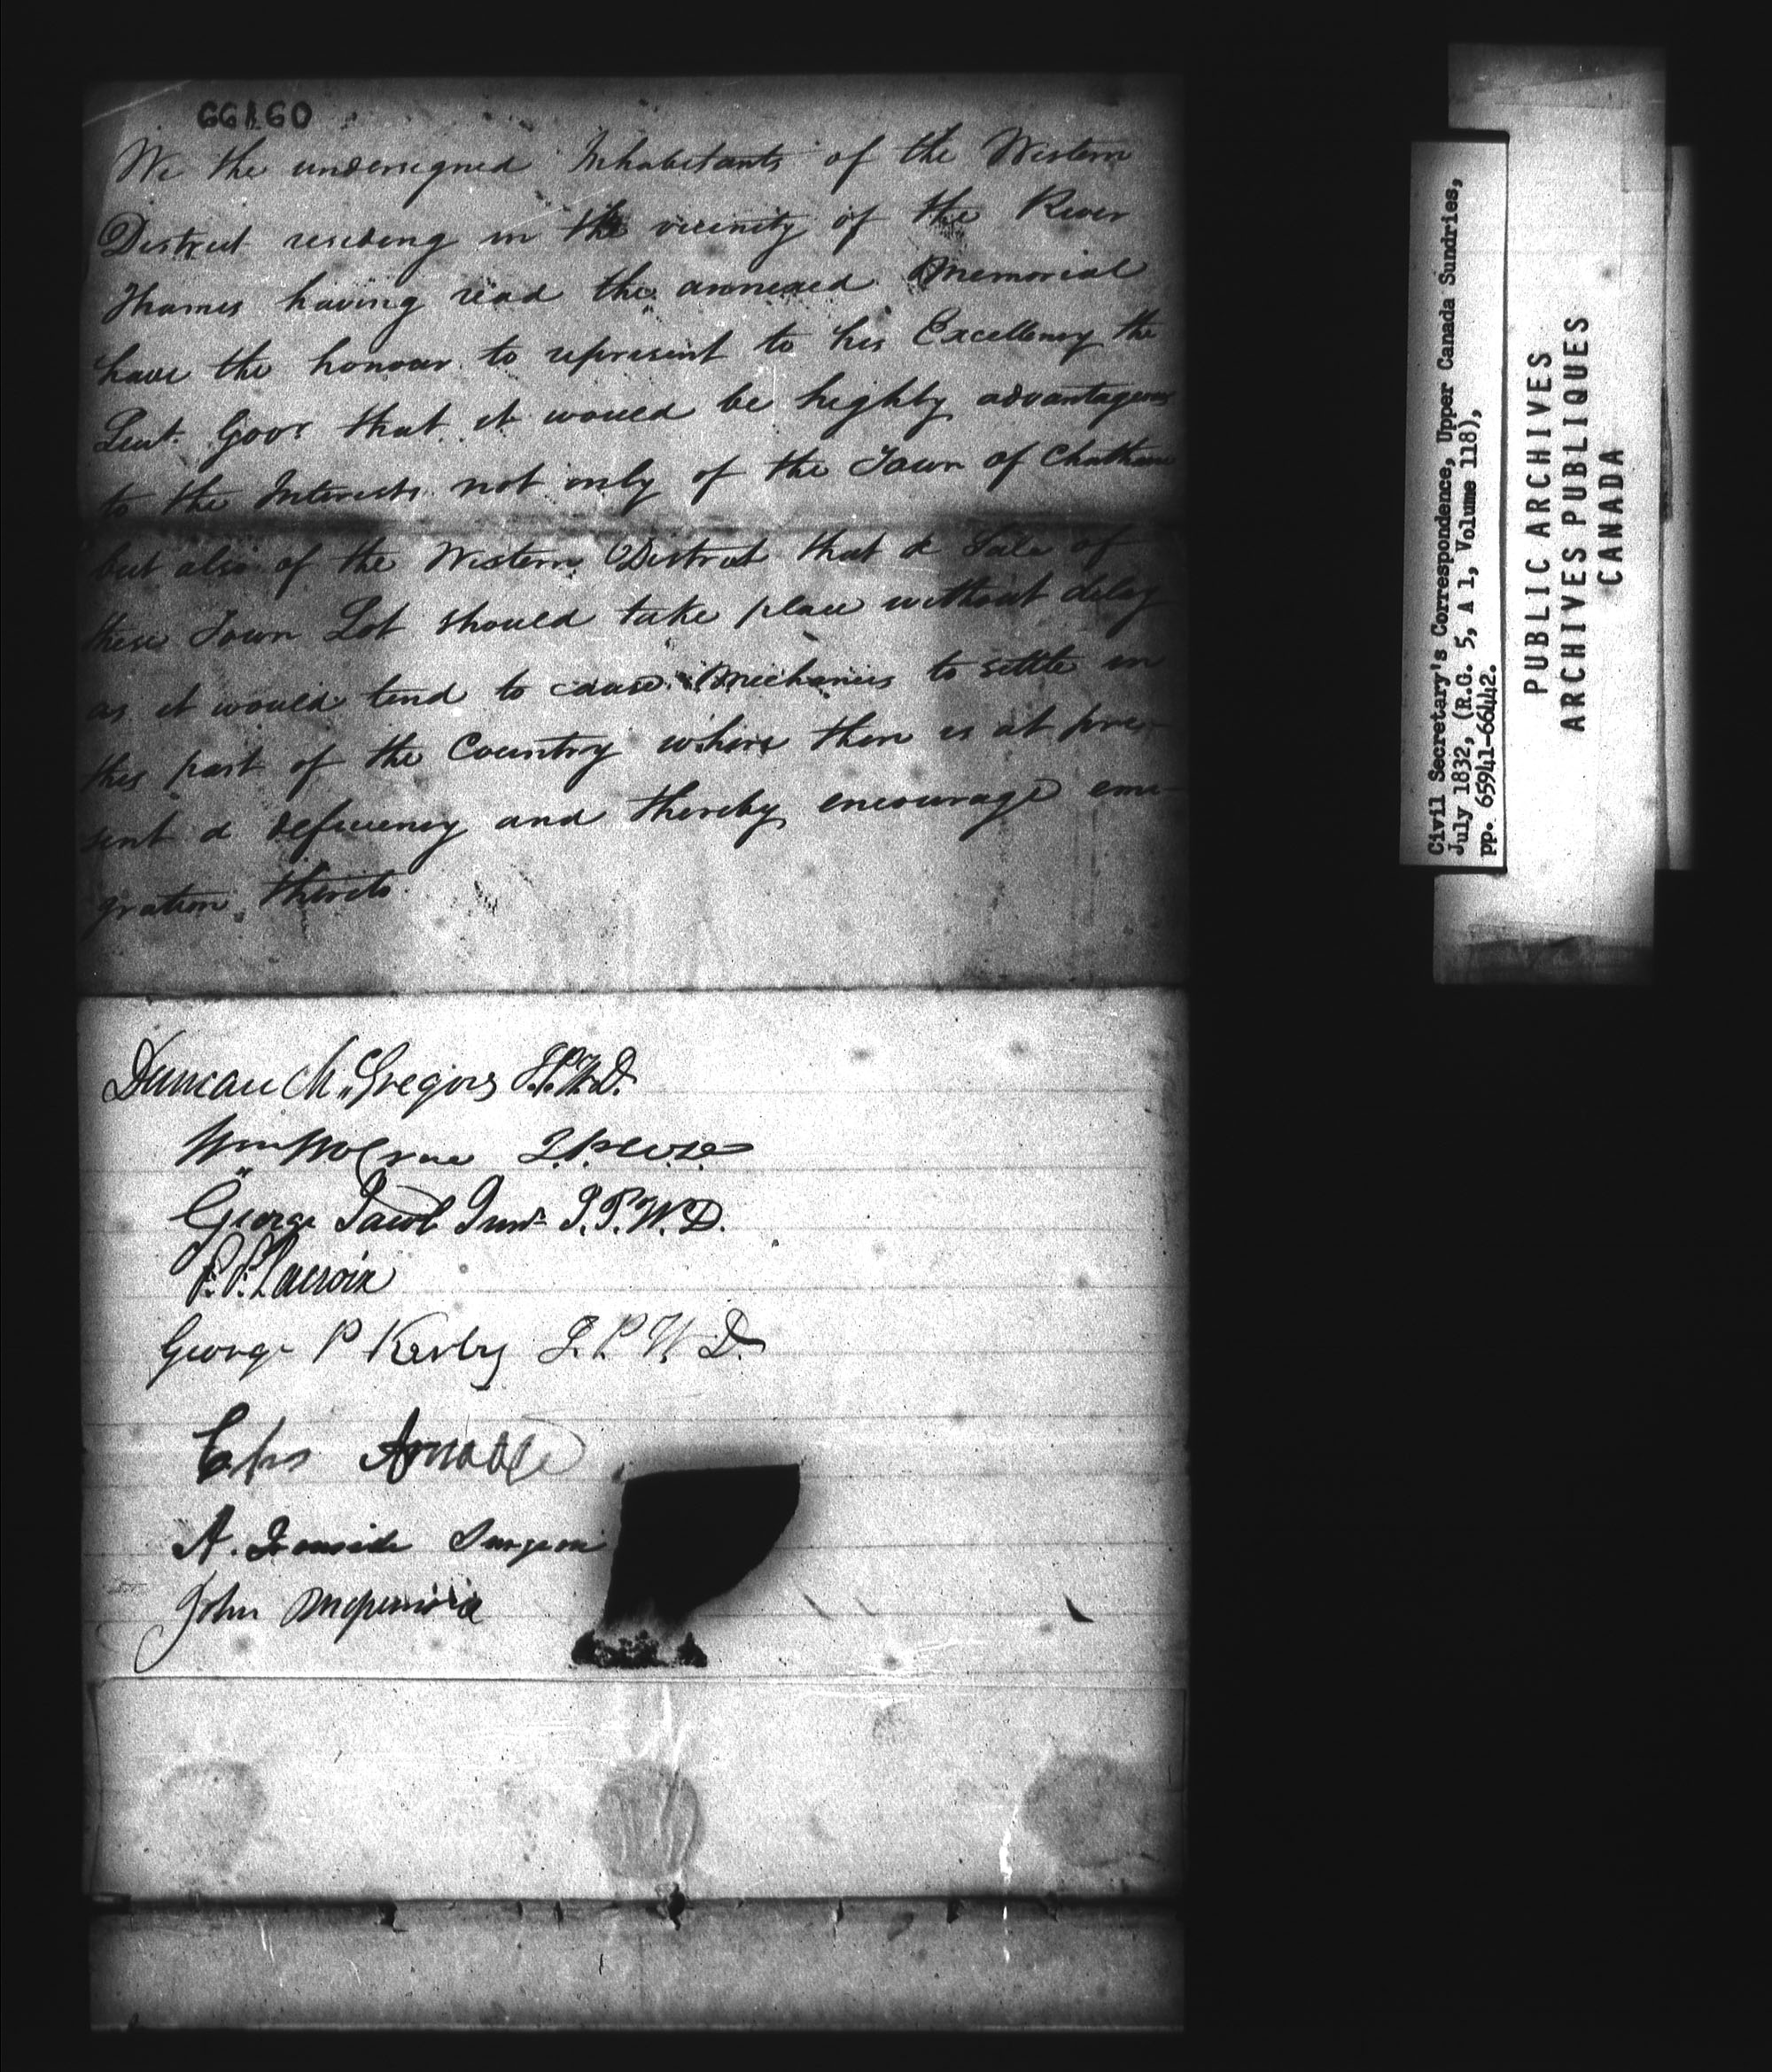 66160
We the undersigned Inhabitants of the Western
District residing in the vicinity of the River
Thames having read the annexed Memorial
have the honour to represent to his Excellency the
Leut. Govr that it would be highly advantageous
to the Interests not only of the Town of Chatham
but also of the Western District that a Sale of
these Town Lot should take place without delay
as it would tend to cause Mechanics to settle in
this part of the Country where there is at pre-
sent a deficiency and thereby encourage emi-
gration thereto
Duncan McGregor J.P.W.D.
Wm McCrae J.P.W.D.
George Jacob Junr J.P.W.D.
P.P. Lacroix
George P Kerby J.P.W.D.
Arnold
A. Ironside Surgeon
John
Civil Secretary's Correspondence, Upper Canada Sundries,
July 1832, (R.G. 5, A 1, Volume 118),
pp. 65941-66442.
PUBLIC ARCHIVES
ARCHIVES PUBLIQUES
CANADA